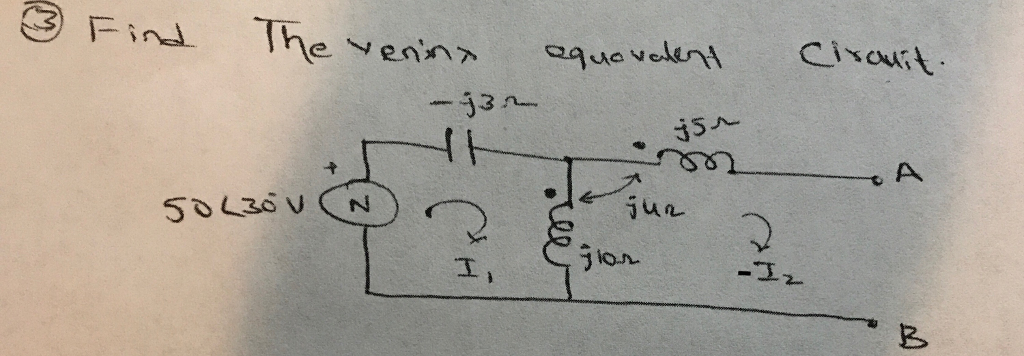 ③ Find The venins equavalent Circuit.
-j3Ω
j5Ω
+
A
50∠30°V
N
j4Ω
I₁
j10Ω
-I₂
B